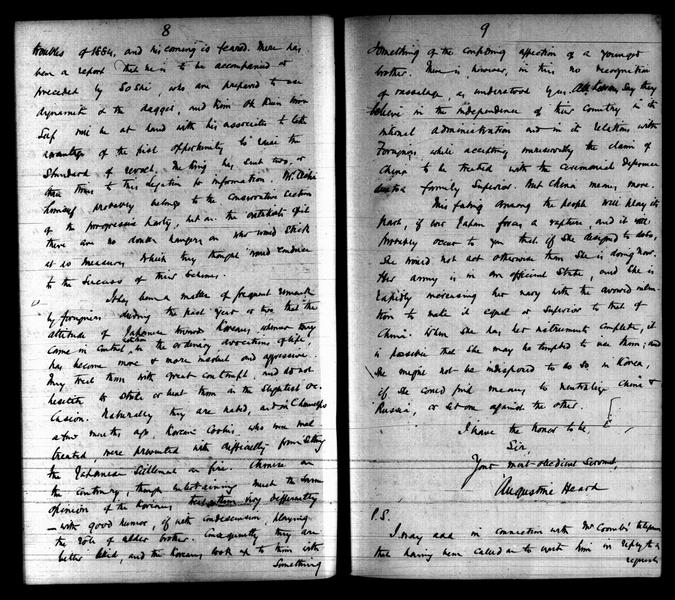 8
troubles of 1884, and his coming is feared. There has
been a report that he is to be accompanied or
preceded by Soshi, who are prepared to use
dynamite & the dagger, and Kim Ok Kiun him
self will be at hand with his associates to take
advantage of the first opportunity to raise the
Standard of revolt. The King has sent two or
three times to this Legation for information.
himself probably belongs to the Conservative section
of the progressive party, but on the outskirts of it
there are no doubt hangers on who would stick
at no measures which they thought would conduce
to the success of their schemes.
It has been a matter of frequent remark
by foreigners during the past year or two that the
attitude of Japanese toward Koreans, whenever they
come in contact in the ordinary avocations of life,
has become more & more insolent and aggressive.
They treat them with great contempt and do not
hesitate to strike or beat them on the slightest oc-
casion. Naturally they are hated, and in Chemulpo
a few months ago, Korean Coolies, who were mal
treated, were prevented with difficulty from setting
the Japanese Settlement on fire. Chinese on
the contrary, though entertaining much the same
opinion of the Koreans, treat them very differently
– with good humor, if with condescension, playing
the rôle of elder brother. Consequently they are
better liked, and the Koreans look up to them with
something
9
something of the confiding affection of a younger
brother. There is however, in this no recognition
of vassalage, as understood by us. All Koreans say they
believe in the independence of their Country in its
internal administration and in its relations with
Foreigners while accepting unreservedly the claim of
China to be treated with the ceremonial deference
due to a formerly Superior. But China means more.
This feeling among the people will play its
part, if ever Japan forces a rupture, and it will
probably occur to you that if she designed to do so,
she would not act otherwise than she is doing now.
Her army is in an efficient State, and she is
rapidly increasing her navy with the avowed inten-
tion to make it equal or superior to that of
China. When she has her instruments complete, it
is possible that she may be tempted to use them; and
she might not be indisposed to do so in Korea,
if she could find means to neutralize China &
Russia, or set one against the other.
I have the honor to be
Sir,
Your most obedient Servant,
Augustine Heard
P.S.
I may add in connection with Mr Coombs' telegram
that having been called on to wait him in reply to a
request